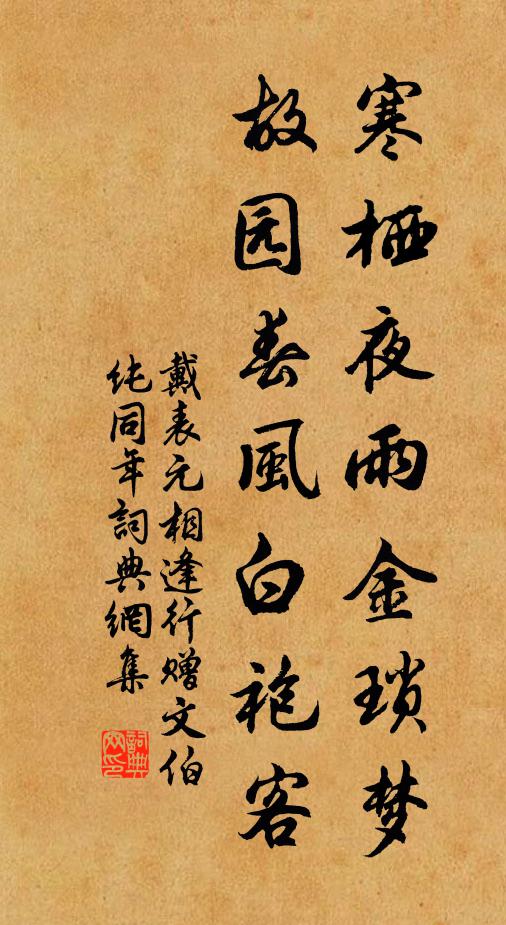 寒栖夜雨金琐梦
故园春風白袍客
戴表元相逢行赠文伯
纯同年詞典網集
詞典網印